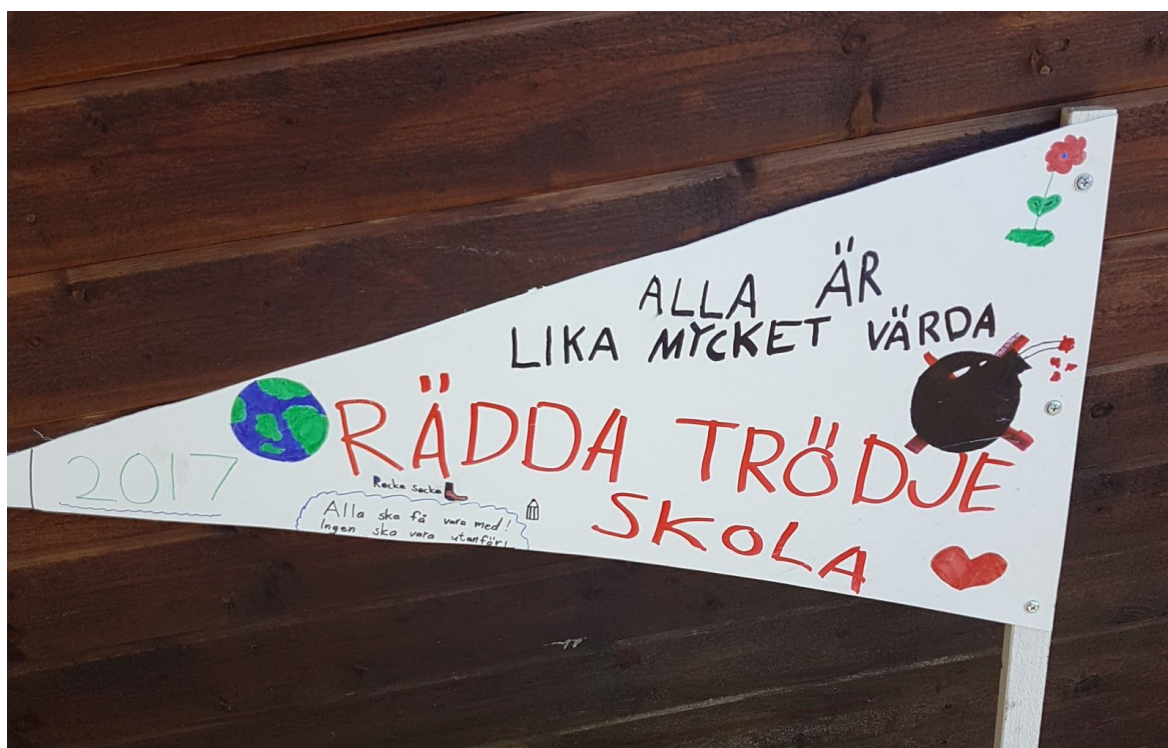 ALLA ÄR
LIKA MYCKET VÄRDA
RÄDDA TRÖDJE
SKOLA
2017
Rocka Socka
Alla ska få vara med!
Ingen ska vara utanför!